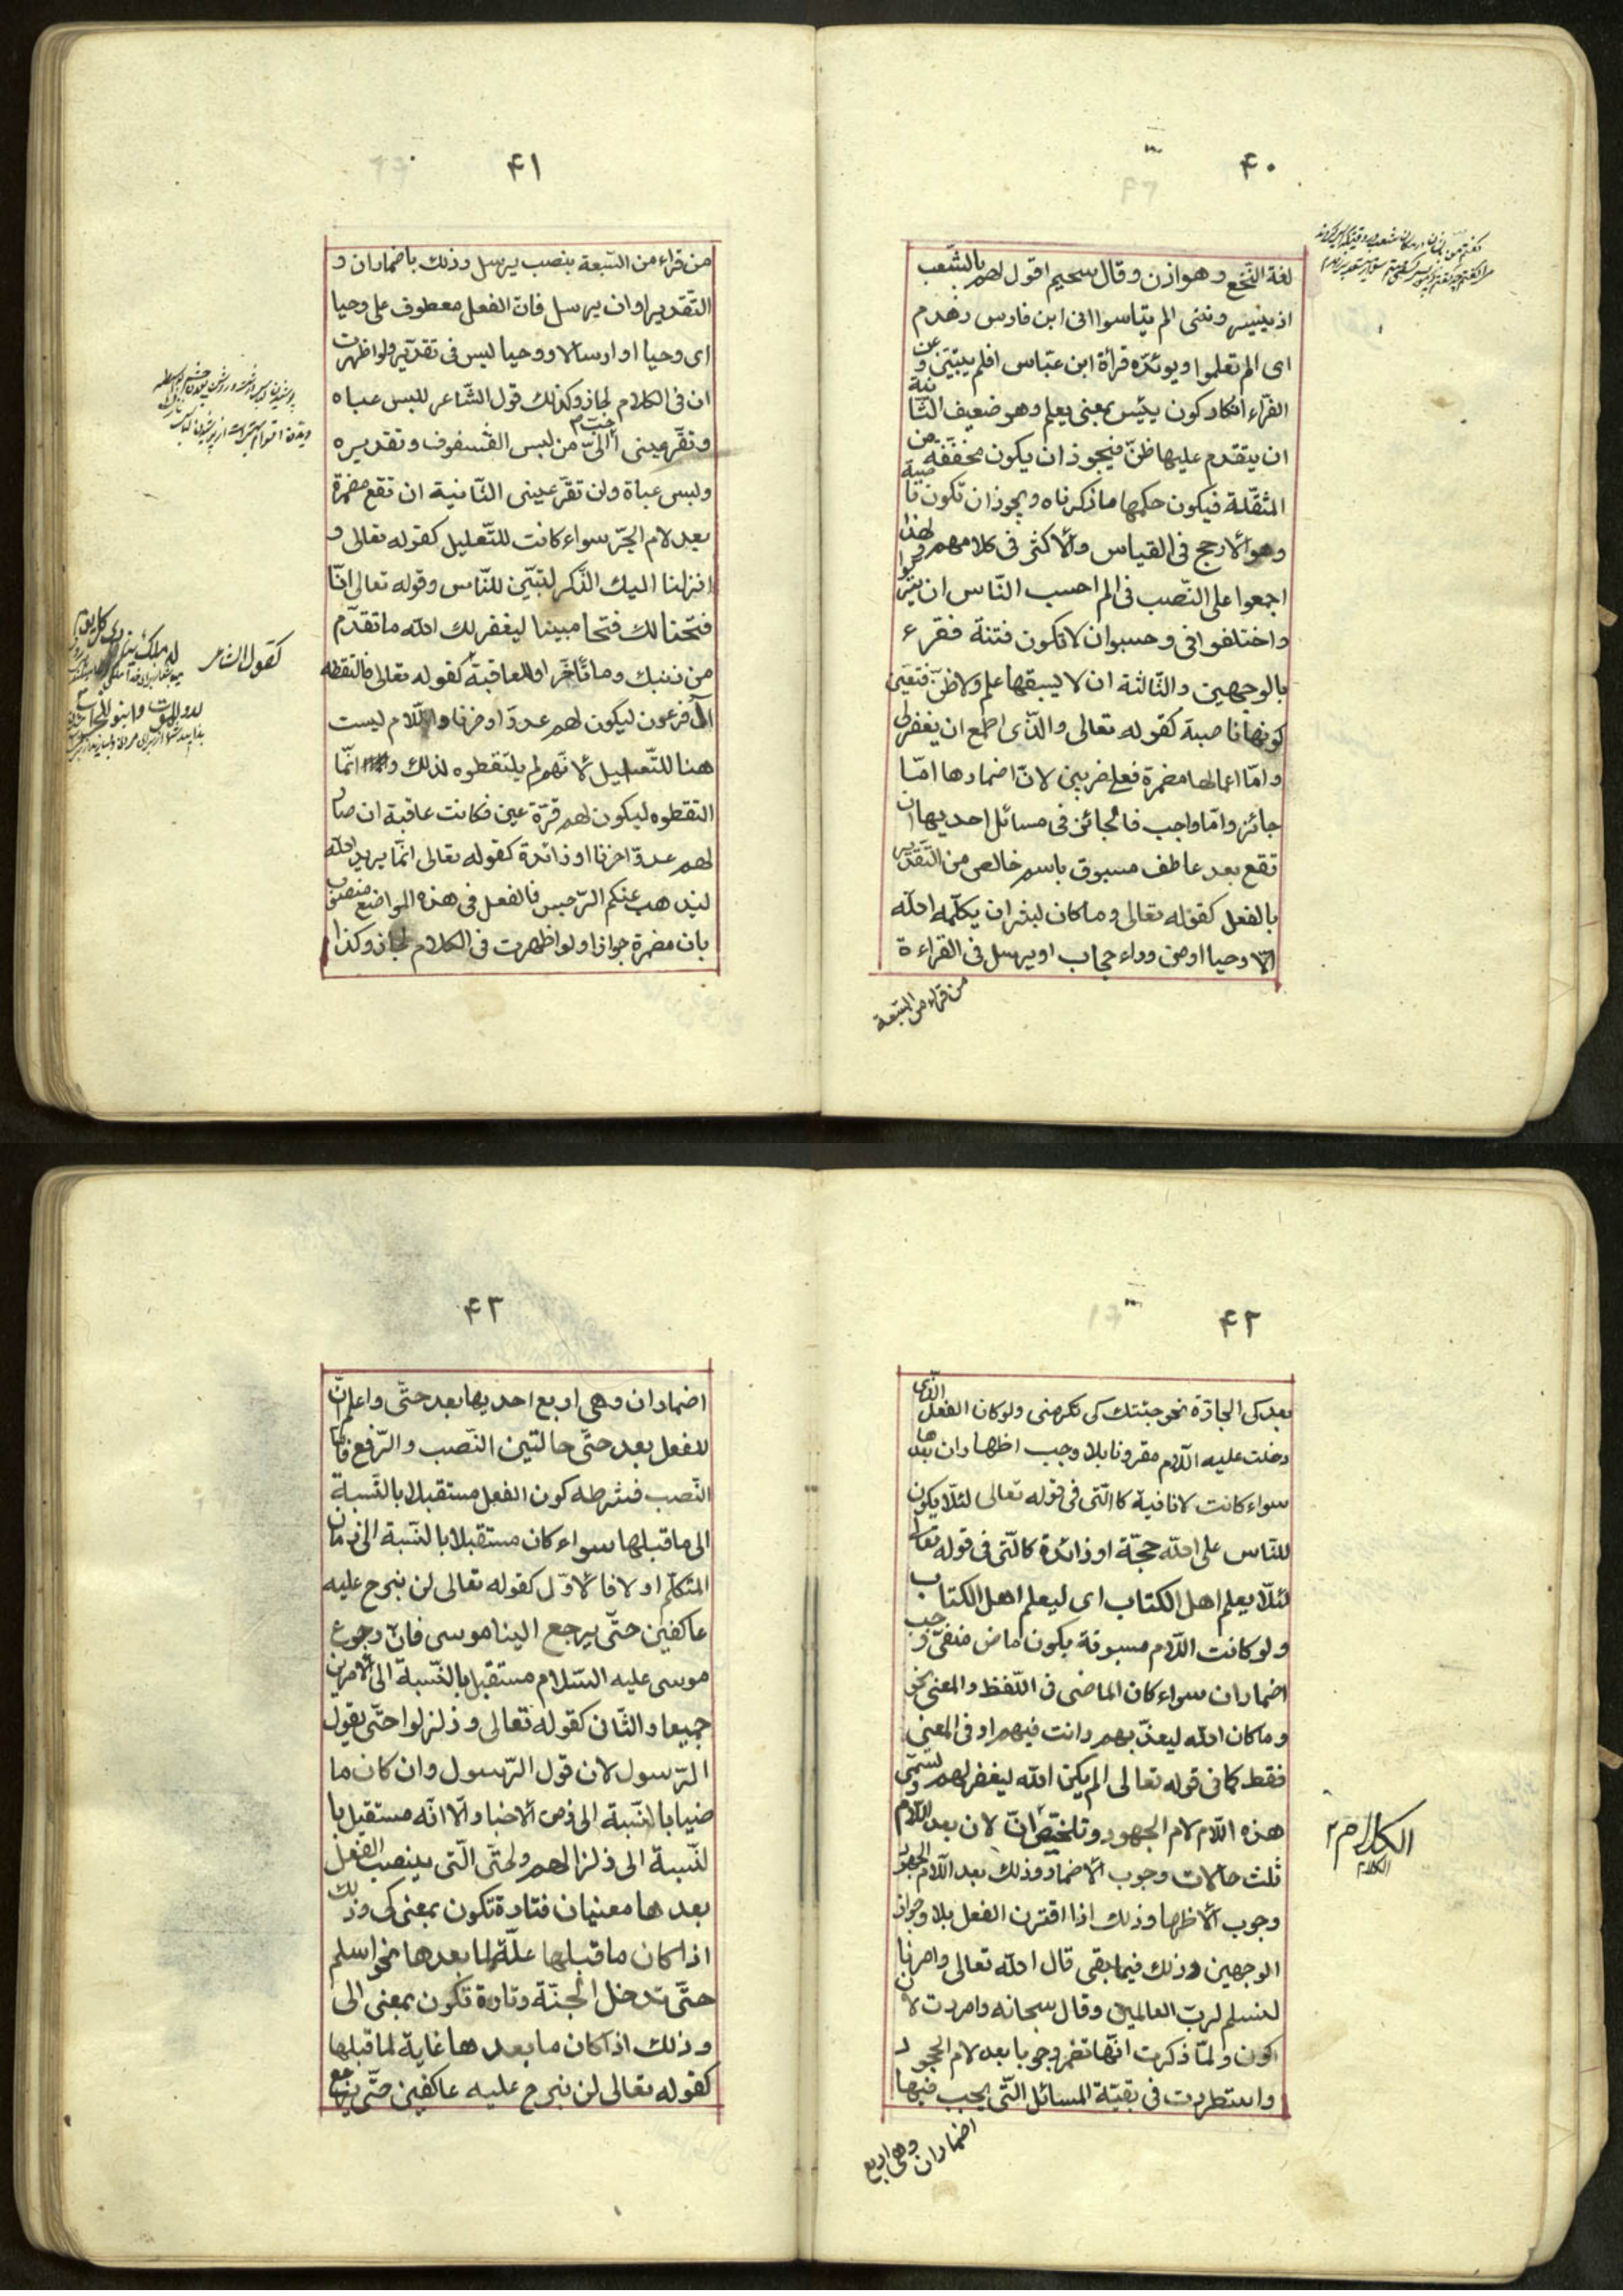 ۴۰
لغة النّخع و هوازن و قال سحيم اقول لهم بالشّعب
اذ ييسر وننى الم تيأسوا انى ابن فارس زهدم
اى الم تعلموا و يؤيّده قرأة ابن عبّاس افلم يتبيّن و عن
الفرّاء انكار كون ييئس بمعنى يعلم وهو ضعيف الثّانية
ان يتقدم عليها ظنّ فيجوز ان يكون مخففة من
المثقّلة فيكون حكمها ما ذكرناه و يجوز ان تكون ناصبة
وهو الأرجح فى القياس والأكثر فى كلامهم لهذا
اجمعوا على النّصب فى الم احسب النّاس ان يتركوا
واختلفوا فى وحسبوا ان لا تكون فتنة فقرء
بالوجهين و الثّالثة ان لا يسبقها علم ولا ظنّ فتعيّن
كونها ناصبة كقوله تعالى والّذى اطمع ان يغفر لى
و امّا اعمالها مضمرة فعلى ضربين لانّ اضمارها امّا
جائز وامّا واجب فالجائز فى مسائل احديها ان
تقع بعد عاطف مسبوق باسم خالص من التّقدير
بالفعل كقوله تعالى وما كان لبشر ان يكلّمه الله
الّا وحيا او من وراء حجاب او يرسل فى القراءة
من قراء من السّبعة
۴۱
من قراء من السّبعة بنصب يرسل و ذلك باضمار ان و
التّقدير او ان يرسل فانّ الفعل معطوف على وحيا
اى وحيا او ارسالا و وحيا ليس فى تقدير ولو اظهرت
ان فى الكلام لجاز وكذلك قول الشّاعر للبس عباه
و تقّر عينى احبّ الىّ من لبس الشّفوف و تقديره
ولبس عباة وان تقّر عينى الثّانية ان تقع مضمرة
بعد لام الجّر سواء كانت للتّعليل كقوله تعالى و
انزلنا اليك الذّكر لتبيّن للنّاس وقوله تعالى انّا
فتحنا لك فتحا مبينا ليغفر لك الله ما تقدّم
من ذنبك وما تأخّر او للعاقبة كقوله تعالى فالتقطه
كقول الشاعر
آل فرعون ليكون لهم عدوّا و حزنا و اللّام ليست
هنا للتّعليل لأنّهم لم يلتقطوه لذلك و انّما
التقطوه ليكون لهم قرّة عين فكانت عاقبة ان صار
لهم عدوّا حزنا او زائدة كقوله تعالى انّما يريد الله
ليذهب عنكم الرّجس فالفعل فى هذه المواضع منصوب
بان مضمرة جوازا ولو اظهرت فى الكلام لجاز وكذا
۴۲
بعد كى الجارّة نحو جئتك كى تكرمنى ولو كان الفعل الّذى
دخلت عليه اللّام مقرونا بلا وجب اظهار ان بعدها
سواء كانت لا نافية كالّتى فى قوله تعالى لئلّا يكون
للنّاس على الله حجّة او زائدة كالّتى فى قوله تعالى
لئلّا يعلم اهل الكتاب اى ليعلم اهل الكتاب
ولو كانت اللّام مسبوقة بكون ماض منفىّ وجب
اضمار ان سواء كان الماضى فى اللّفظ والمعنى نحو
وما كان الله ليعذّبهم وانت فيهم او فى المعنى
فقط كما فى قوله تعالى الم يكن الله ليغفر لهم و تسمّى
هذه اللّام لام الجهود و تلخّص انّ لان بعد اللّام
ثلث حالات وجوب الأضمار و ذلك بعد اللّام الجهود
وجوب الأظهار و ذلك اذا اقترن الفعل بلا وجواز
الوجهين و ذلك فيما بقى قال الله تعالى وامرنا
لنسلم لربّ العالمين وقال سبحانه وامرت لأن
اكون ولمّا ذكرت انّها تضمر وجوبا بعد لام الجحود
واستطردت فى بقيّة المسائل الّتى يجب فيها
اضمار ان وهى اربع
۴۳
اضمار ان وهى اربع احديها بعد حتّى واعلم انّ
للفعل بعد حتّى حالتين النّصب والرّفع فامّا
النّصب فشرطه كون الفعل مستقبلا بالنّسبة
الى ما قبلها سواء كان مستقبلا بالنّسبة الى زمان
المتكلّم او لا فالأوّل كقوله تعالى لن نبرح عليه
عاكفين حتّى يرجع الينا موسى فانّ رجوع
موسى عليه السّلام مستقبل بالنّسبة الى الأمرين
جميعا و الثّانى كقوله تعالى و زلزلوا حتّى يقول
الرّسول لان قول الرّسول وان كان ما
ضيا بالنّسبة الى زمن الاخبار الّا انّه مستقبل با
لنّسبة الى زلزالهم ولحتّى الّتى ينصب الفعل
بعدها معنيان فتارة تكون بمعنى كى وذلك
اذا كان ما قبلها علّة لما بعدها نحو اسلم
حتّى تدخل الجنّة وتارة تكون بمعنى الى
و ذلك اذا كان ما بعدها غاية لما قبلها
كقوله تعالى لن نبرح عليه عاكفين حتّى يرجع